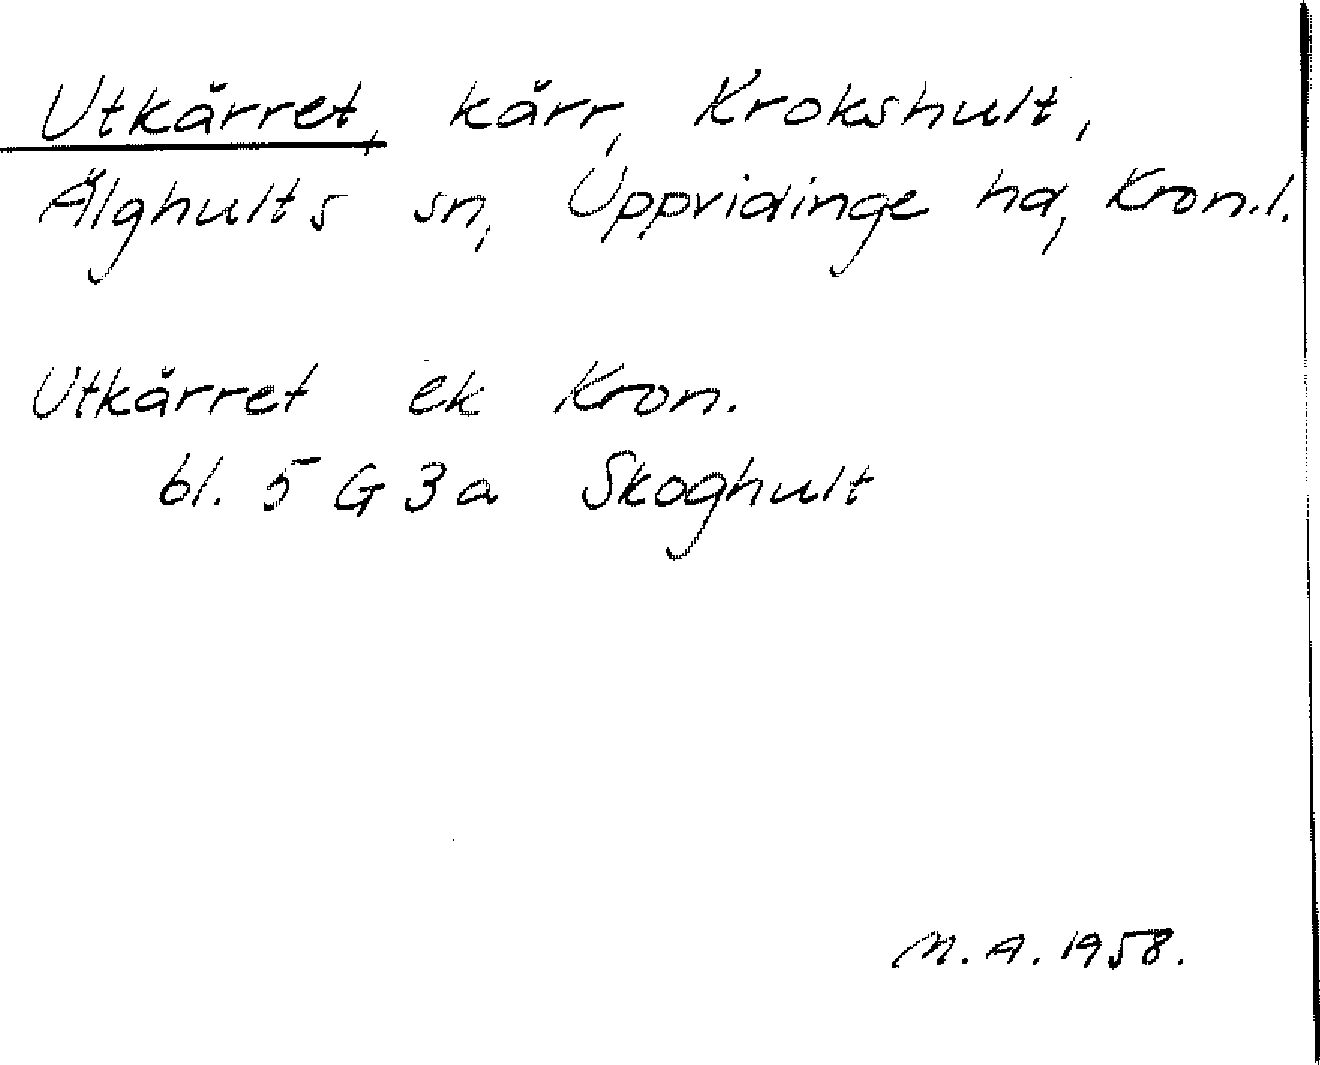 Utkärret, kärr, Krokshult,
Älghults sn, Uppvidinge hd, Kron.l.
Utkärret ek Kron.
bl. 5 G 3 a Skoghult
M. A. 1958.